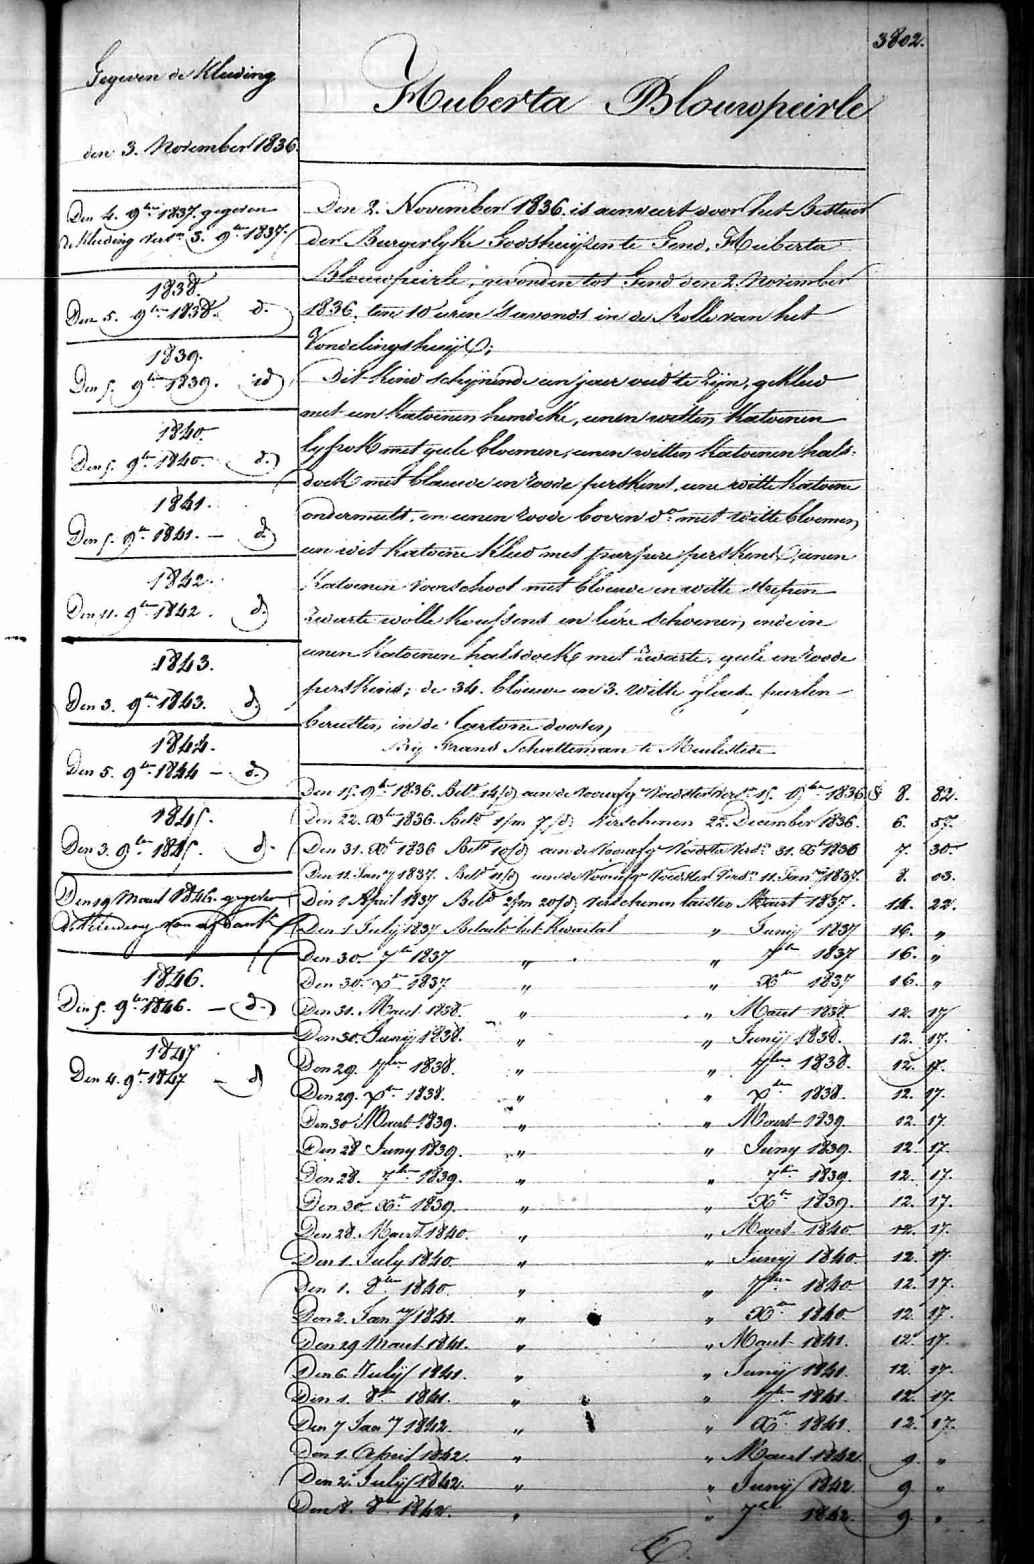 3802.
Gegeven de Kleeding
den 3. November 1836.
Den 4. 9ber 1837. gegeven
de Kleeding versn 3. 9ber 1837.
1838.
Den 5. 9ber 1838. d.
1839.
Den 5. 9ber 1839. id
1840.
Den 5. 9ber 1840. d.
1841.
Den 5. 9ber 1841. — d.
1842.
Den 11. 9ber 1842. d.
1843.
Den 3. 9ber 1843. d.
1844.
Den 5. 9ber 1844 — d.
1845.
Den 3. 9ber 1845. d.
Den 19 Maert 1846. gegeven
de Kleeding van
1846.
Den 5. 9ber 1846. — d.
1847
Den 4. 9ber 1847 — d
Huberta Blouwpeirle
Den 2. November 1836. is aenveert door het Bestuur
der Burgerlyke Godshuijzen te Gend, Huberta
Blouwpeirle, gevonden tot Gend den 2. November
1836, ten 10 uren 's avonds in de Rolle van het
Vondelingshuijs;
Dit kind schijnende een jaer oud te zijn, gekleed
met een katoenen hemdeke, eenen witten katoenen
lyfrok met geele bloemen, eenen witten katoenen hals-
doek met blauwe en roode perskens, eene witte katoene
ondermuts, en eenen roode boven do met witte bloemen,
een wit katoene kleed met purpere perskens, eenen
katoenen voorschoot met blouwe en witte strepen
zwarte wolle koussens en leire schoenen, ende in
eenen katoenen halsdoek met zwarte, geele en roode
perskens; de 34. blouwe en 3. witte glaese peirlen
berusten in de Cartone doosen,
Bij Frans Schatteman te Meulestede
Den 15. 9ber 1836. Betd 14/d aen de Voorafge Voedster versn 15. 9ber 1836 f 8. 82.
Den 22. Xber 1836. Betd 1/m 7/d. verschenen 22. December 1836. 6. 57.
Den 31. Xber 1836 Betd 10/d aen de Voorafge Voedster versn 31. Xber 1836 7. 30.
Den 12. Jany 1837. Betd 11/d aen de Voorafge Voedster versn 11. Jany 1837. 8. 03.
Den 1. April 1837 Betd 2/m 20/d verschenen laesten Maert 1837. 14. 22.
Den 1 July 1837 Betaeld het Kwartael " Junij 1837 16. "
Den 30 7ber 1837 " " 7ber 1837 16. "
Den 30. Xber 1837 " " Xber 1837 16. "
Den 31. Maert 1838. " " Maert 1838. 12. 17
Den 30. Junij 1838. " " Junij 1838. 12. 17.
Den 29. 7ber 1838. " " 7ber 1838. 12. 17.
Den 29. Xber 1838. " " Xber 1838. 12. 17.
Den 30 Maert 1839. " " Maert 1839. 12. 17.
Den 28 Juny 1839. " " Juny 1839. 12. 17.
Den 28. 7ber 1839. " " 7ber 1839. 12. 17.
Den 30 Xber 1839. " " Xber 1839. 12. 17.
Den 28. Maert 1840. " " Maert 1840 12. 17.
Den 1. July 1840. " " Junij 1840. 12. 17.
Den 1. 8ber 1840. " " 7ber 1840 12. 17.
Den 2. Jany 1841. " " Xber 1840. 12. 17.
Den 29 Maert 1841. " " Maert 1841. 12. 17.
Den 6. Julij 1841. " " Junij 1841. 12. 17.
Den 1. 8ber 1841. " " 7ber 1841. 12. 17.
Den 7 Jany 1842. " " Xber 1841. 12. 17.
Den 1. April 1842. " " Maert 1842. 9. "
Den 2. Julij 1842. " " Junij 1842 9 "
Den 8. 8ber 1842. " " 7ber 1842. 9. "